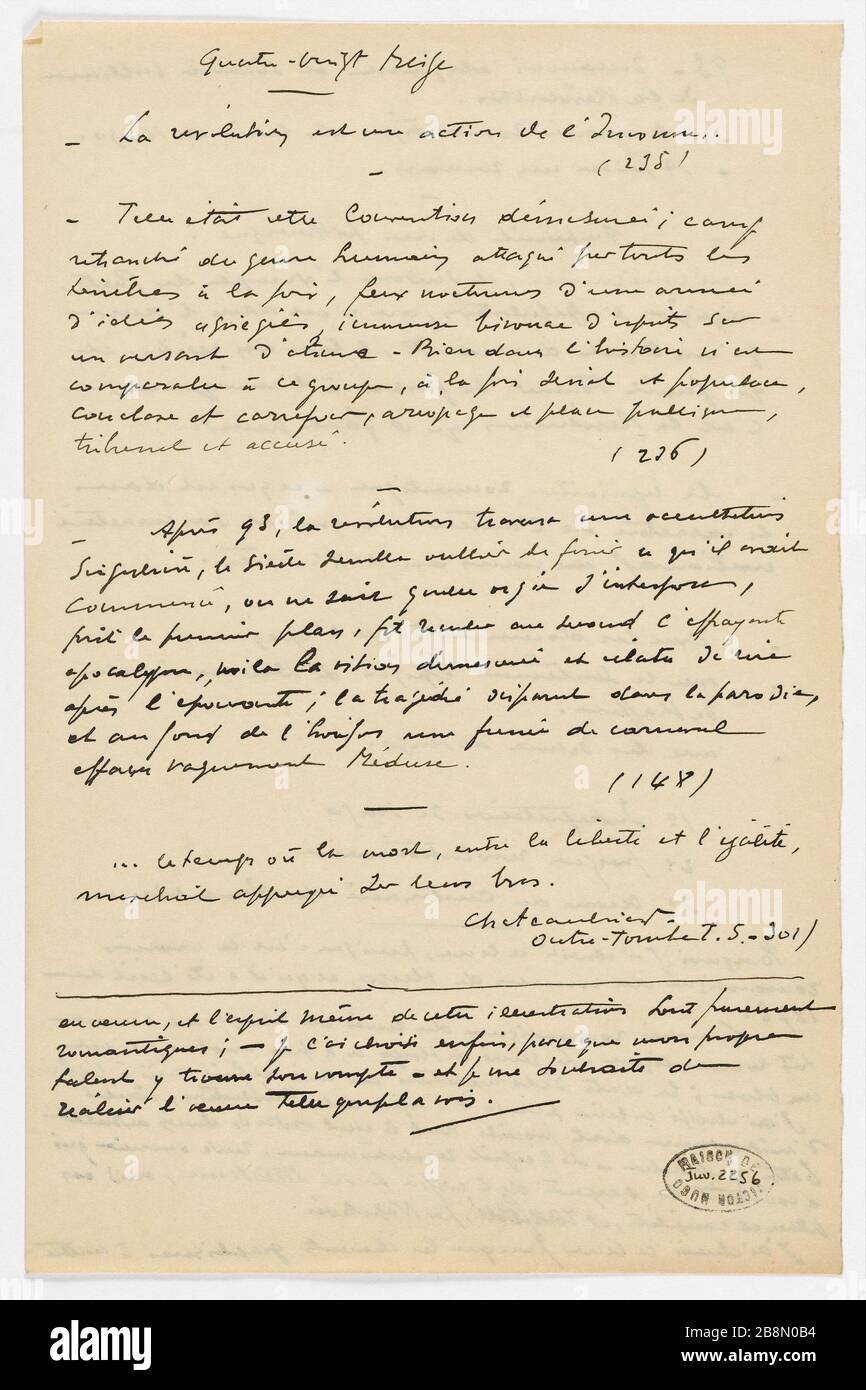 Quatre-vingt treize
- La révolution est une action de l'Inconnu..
(235)
- Telle était cette Convention démesurée ; camp
retranché du genre humain attaqué par toutes les
ténèbres à la fois, feux nocturnes d'une armée
d'idées assiégées, immense bivouac d'esprits sur
un versant d'abîme - Rien dans l'histoire n'est
comparable à ce groupe, à la fois sénat et populace,
conclave et carrefour, aréopage et place publique,
tribunal et accusé.
(236)
- Après 93, la révolution traversa une occultation
singulière, le siècle sembla oublier de finir ce qu'il avait
commencé, on ne sait quelle orgie s'interposa,
prit le premier plan, fit reculer au second l'effrayante
apocalypse, voila la vision démesurée et éclata de rire
après l'épouvante ; la tragédie disparut dans la parodie,
et au fond de l'horizon une fumée de carnaval
effaça vaguement Méduse.
(148)
... le temps où la mort, entre la liberté et l'égalité,
marchait appuyée sur leurs bras.
Chateaubriand
Outre-Tombe T. 5. - 301)
en œuvre, et l'esprit même de cette illustration sont purement
romantiques ; - je l'ai choisi enfin, parce que mon propre
talent y trouve son compte - et je me souhaite de
réaliser l'œuvre telle que je la vois.
MAISON DE VICTOR HUGO
Inv. 2256
alamy
alamy
Image ID: 2B8N0B4
www.alamy.com